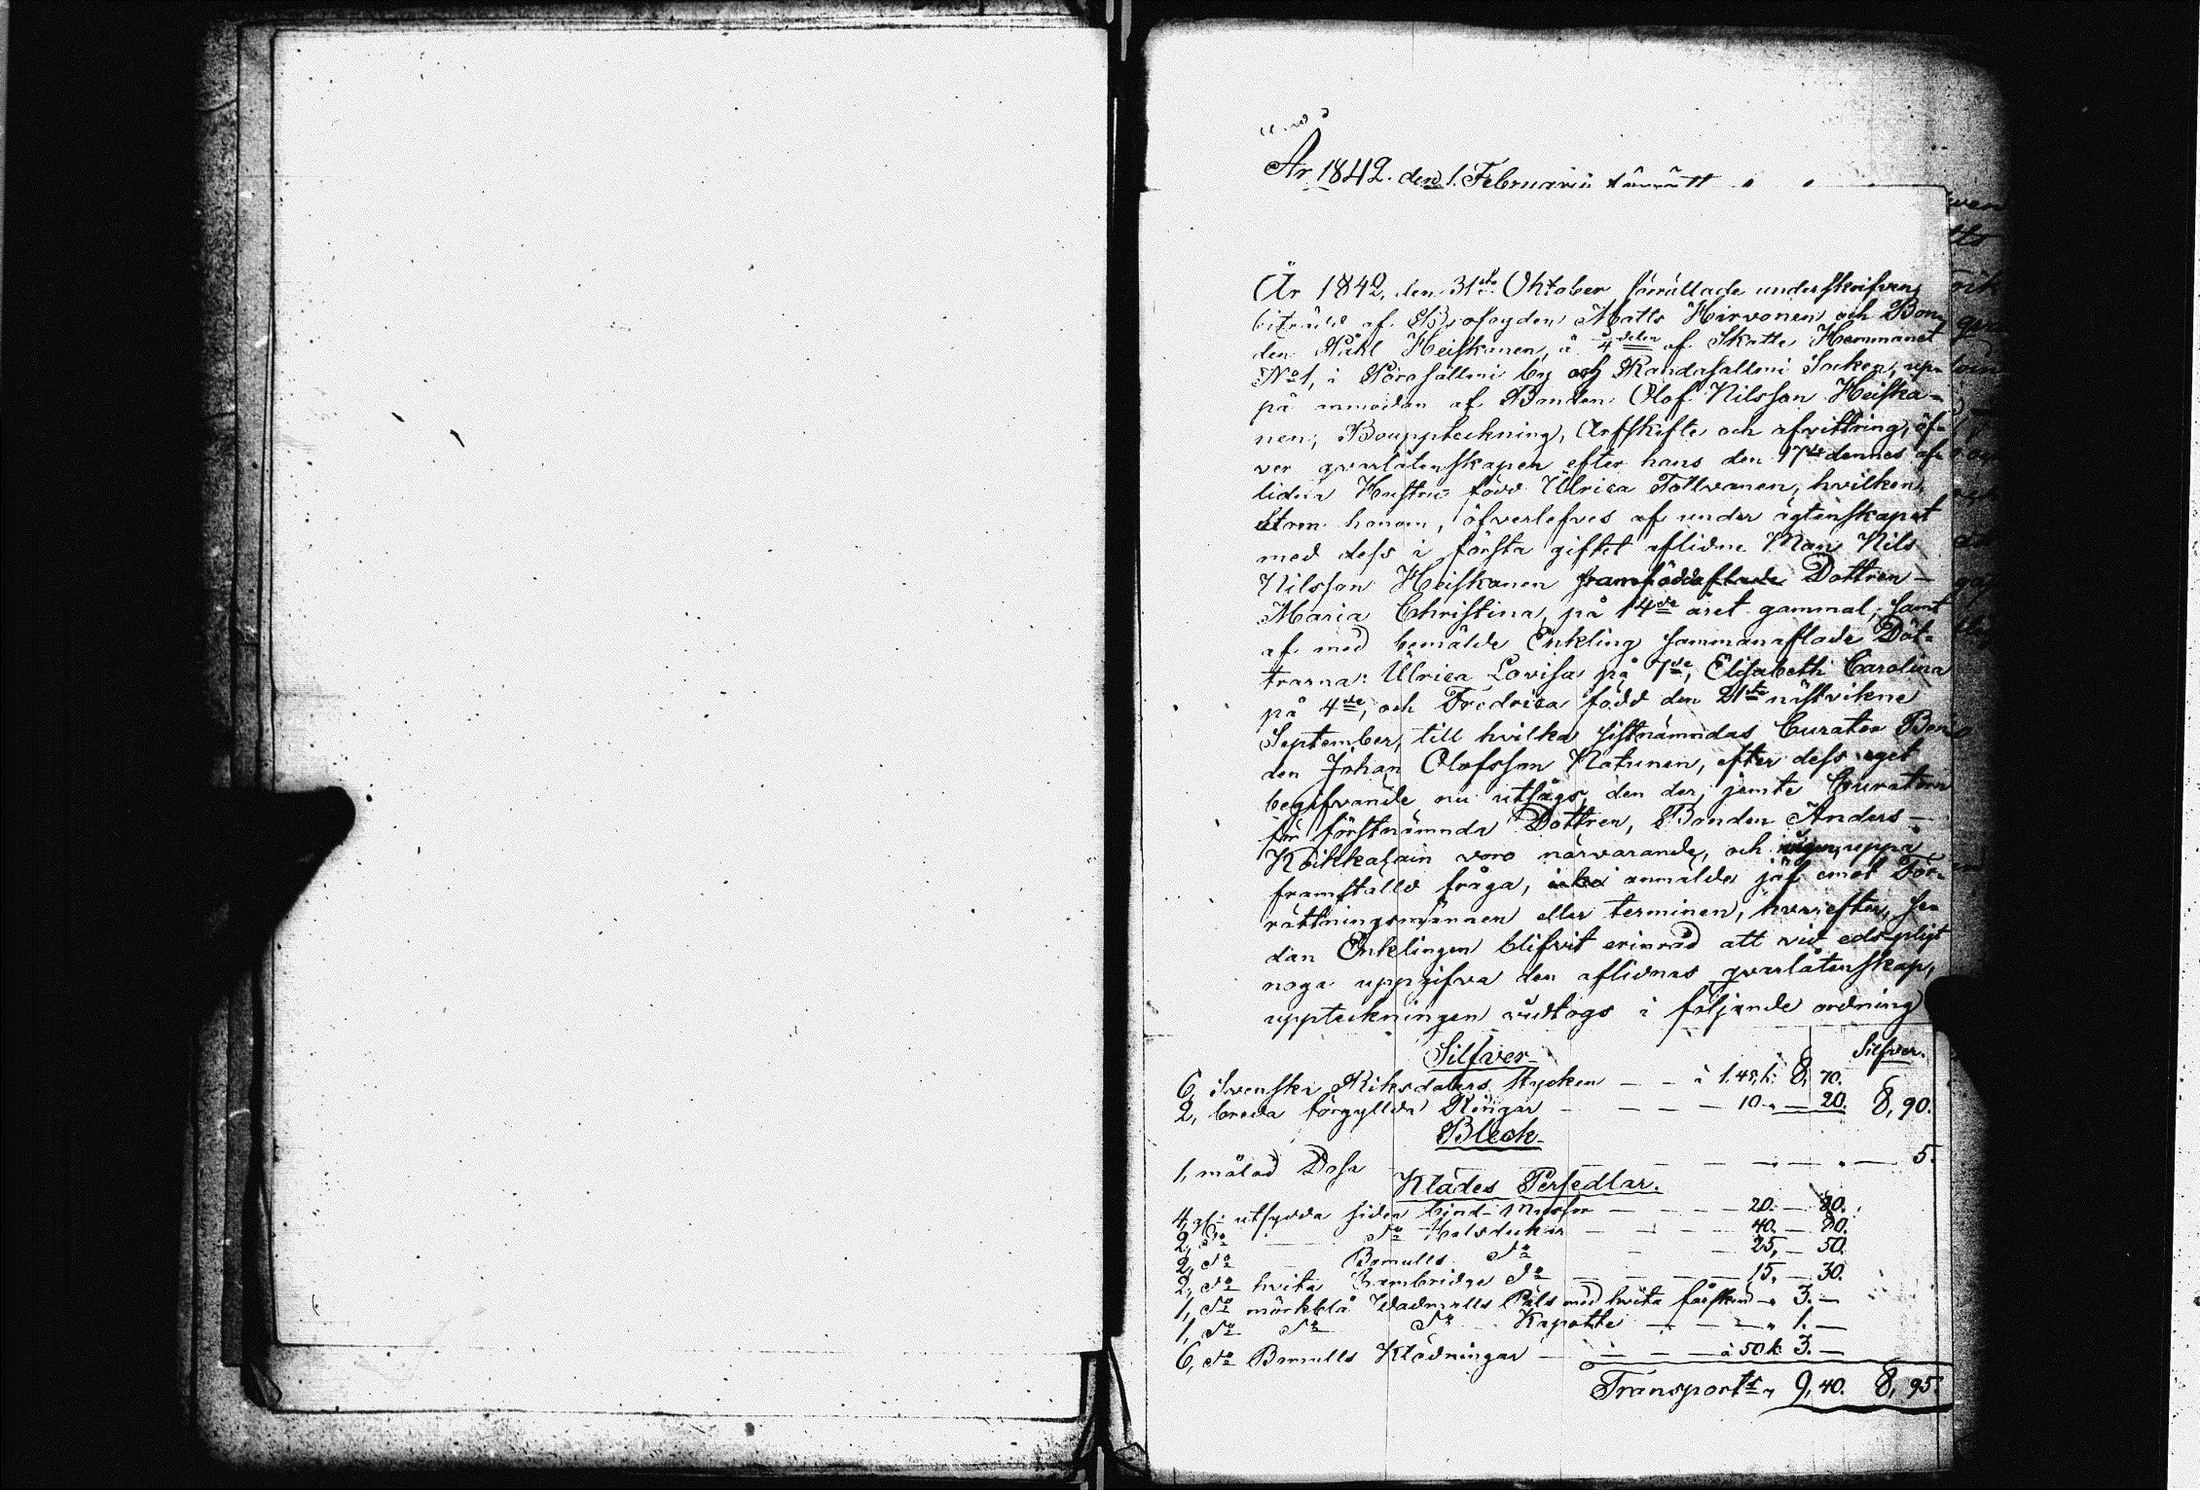 År 1842. den 1. Februarii förrätt
År 1842, den 31ste Oktober förrättade underskrifven,
biträdd af Brofogden Matts Hirvonen och Bon-
den Påhl Heiskanen, å 1/4delen af Skatte Hemmanet
No 1, i Pörösalmi by och Randasalmi Socken, up-
på anmodan af Bonden Olof Nilsson Heiska-
nen, Bouppteckning, Arfskifte och afvittring, öf-
ver qvarlåtenskapen efter hans den 17de dennes af-
lidna Hustru född Ulrica Tollvanen, hvilken,
utom honom, öfverlefves af under ägtenskapet
med dess i första giftet aflidne Man Nils
Nilsson Heiskanen framfödda Dottren -
Maria Christina, på 14de året gammal, samt
af med bemälde Enkling sammanaflade Döt-
trarna: Ulrica Lovisa på 7de, Elisabeth Carolina
på 4de, och Fredrica född den 21ste nästvikne
September, till hvilka sistnämndas Curator Bon-
den Johan Olofsson Natunen, efter dess eget
begifvande nu utsågs, den der, jemte Curatorn
för förstnämnda Dottren, Bonden Anders -
Koikkalain voro närvarande, och uppå
framställd fråga, icke anmälde jäf emot För-
rättningsmännen eller terminen, hvarefter, se-
dan Enklingen blifvit erinrad att vid edspligt
noga uppgifva den aflidnas qvarlåtenskap,
uppteckningen vidtogs i följande ordning
Silfver. Silfver.
6, Svenska Riksdalers stycken — — à 1.45 k. 8, 70.
2, breda förgyllda Ringar — — — 10 „ — 20. 8, 90.
Bleck.
1, målad Dosa — — — — — 5.
Klädes Persedlar.
4, st. utsydda siden bind-Mössor — — — 20. — 80.
2, Do — Do Halsdukar — — — 40. — 80.
2, Do — Bomulls Do — — 25, — 50.
2, Do hvita Cambridge Do — — — 15, — 30.
1, Do mörkblå Wadmalls Päls med hvita fårskinn „ 3. —
1, Do Do Do Kapotte — — — „ 1. —
6, Do Bomulls Klädningar — — — à 50 k. 3. —
Transport „ 9, 40. 8, 95.